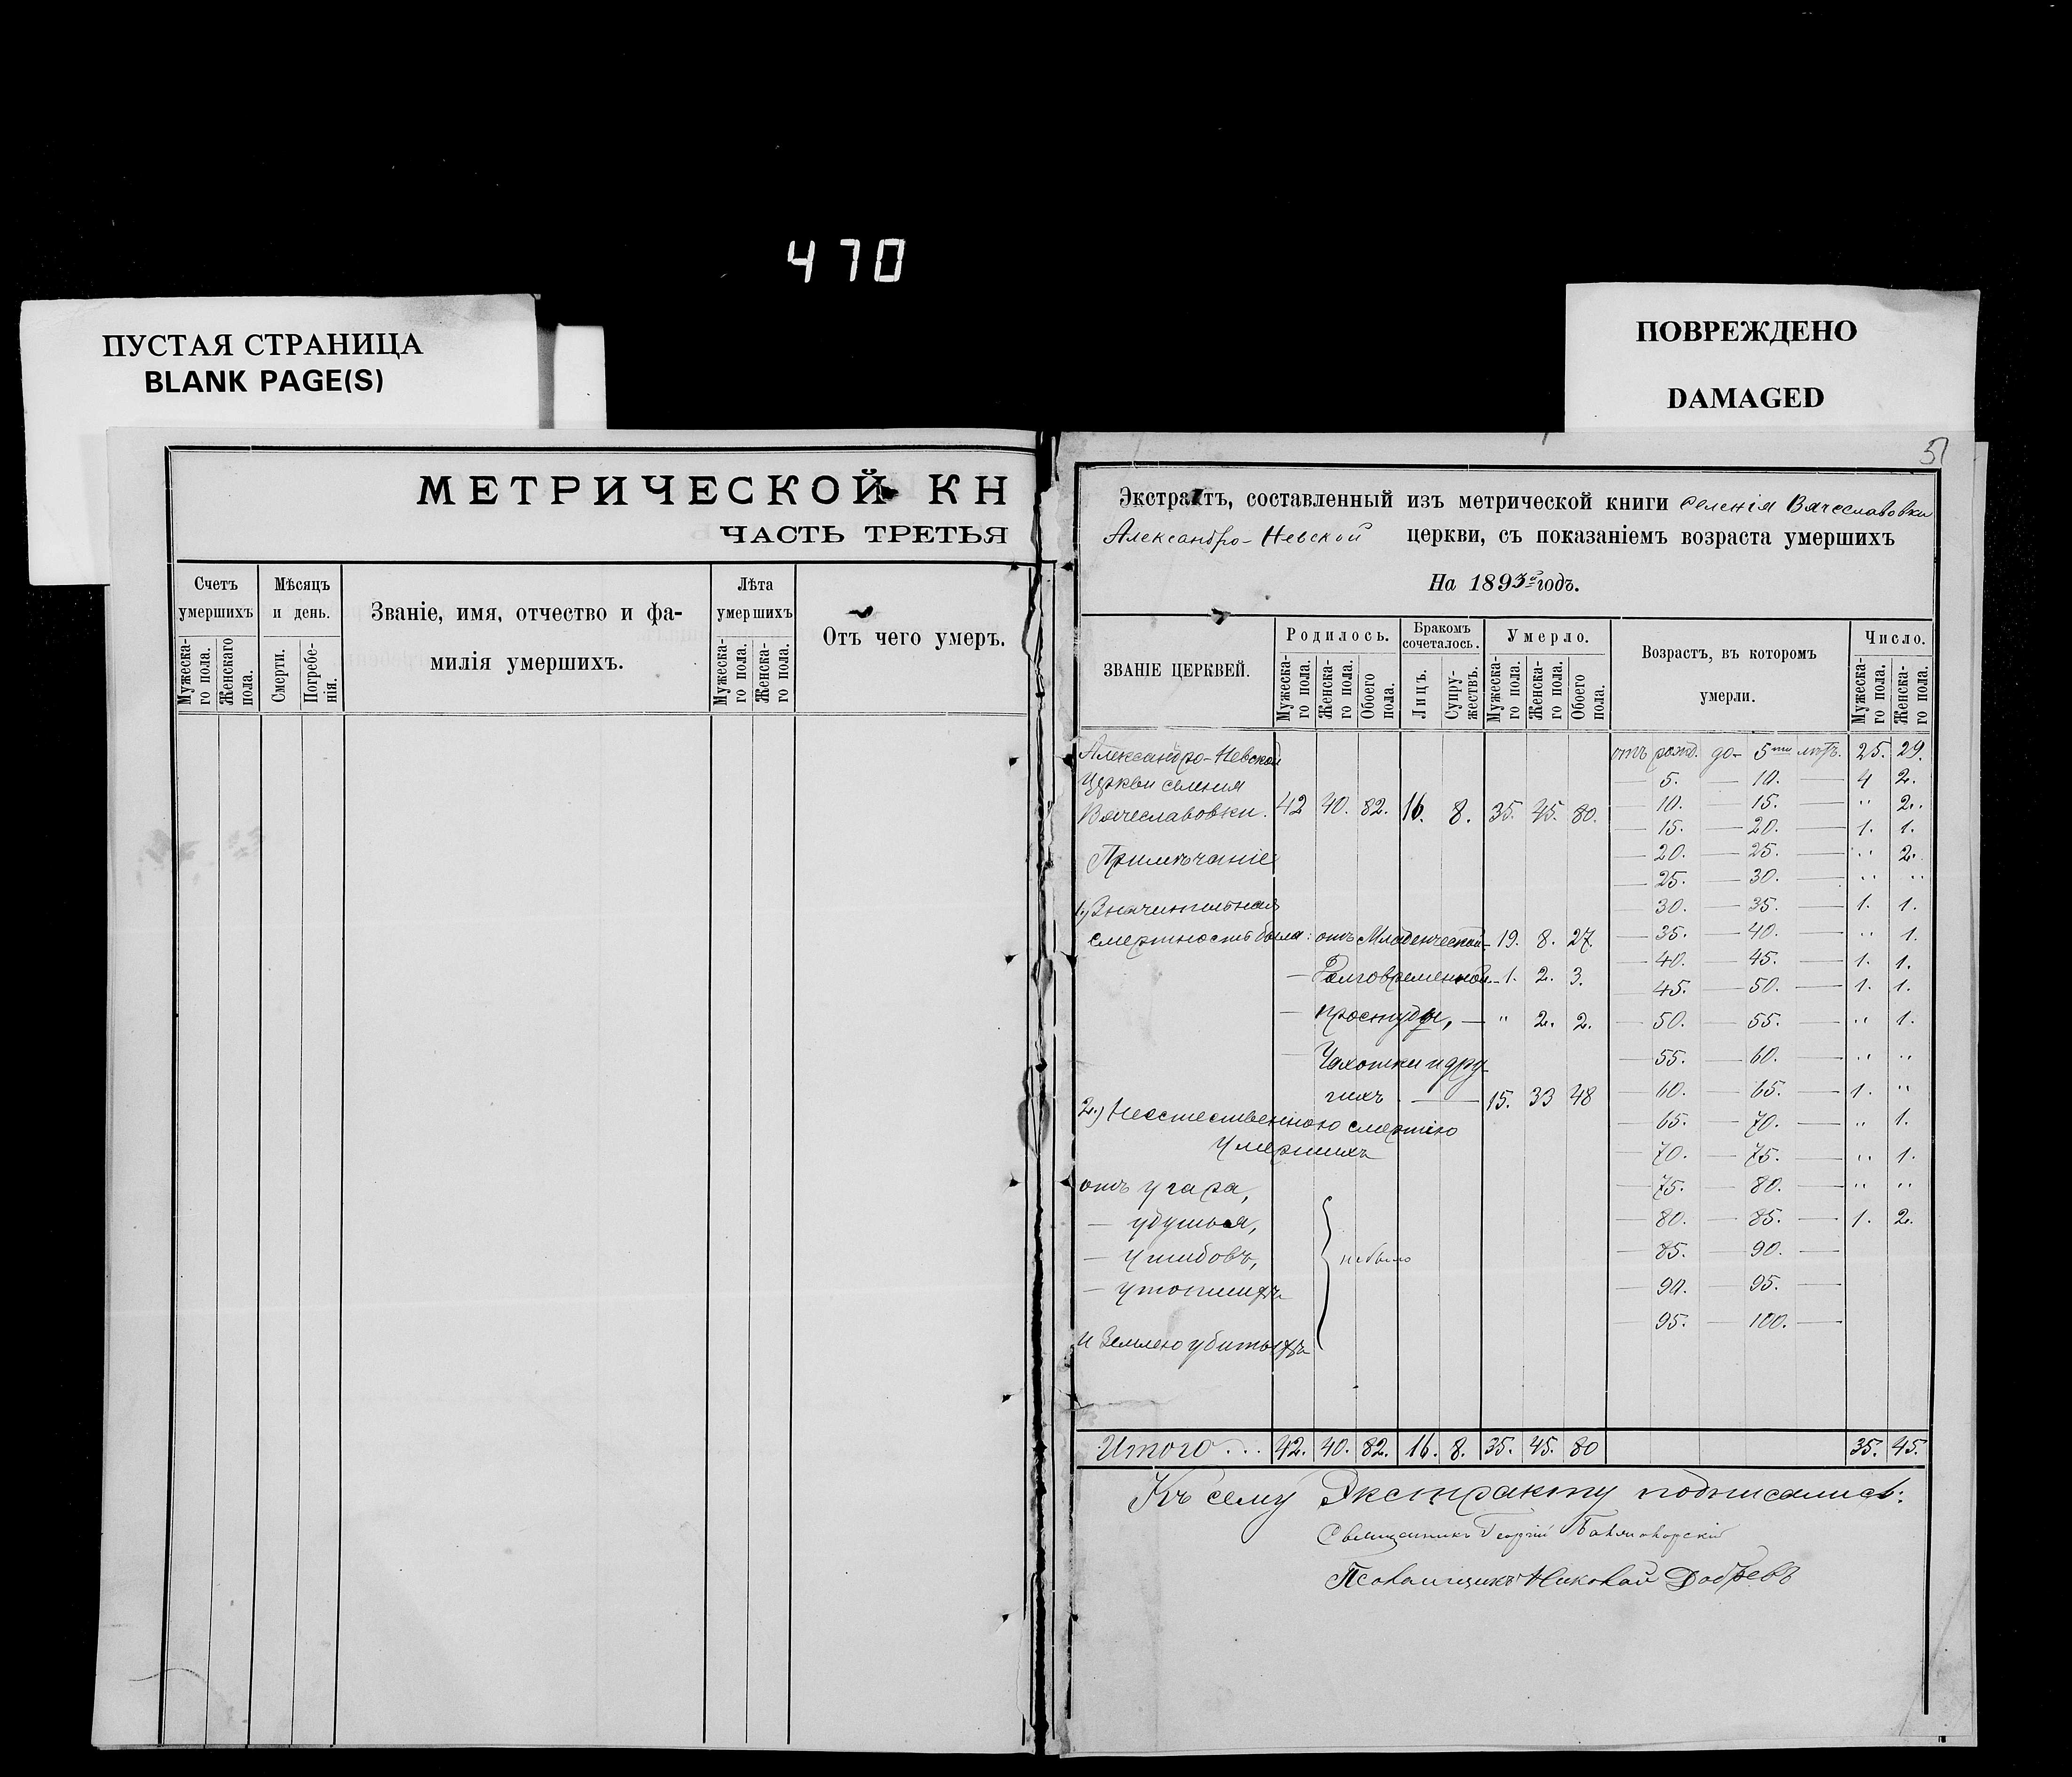 470
ПУСТАЯ СТРАНИЦА
BLANK PAGE(S)
ПОВРЕЖДЕНО
DAMAGED
МЕТРИЧЕСКОЙ КН
ЧАСТЬ ТРЕТЬЯ
Счетъ умершихъ
Мужеска-го пола.
Женскаго пола.
Мѣсяцъ и день.
Смерти.
Погребе-нія.
Званіе, имя, отчество и фа-
милія умершихъ.
Лѣта умершихъ
Мужеска-го пола.
Женска-го пола.
Отъ чего умеръ.
51
Экстрактъ, составленный изъ метрической книги селенія Вячеславовки
Александро-Невской церкви, съ показаніемъ возраста умершихъ
На 1893й годъ.
ЗВАНІЕ ЦЕРКВЕЙ.
Родилось.
Мужеска-го пола.
Женска-го пола.
Обоего пола.
Бракомъ сочеталось.
Лицъ.
Супру-жествъ.
Умерло.
Мужеска-го пола.
Женска-го пола.
Обоего пола.
Возрастъ, въ которомъ
умерли.
Число.
Мужеска-го пола.
Женска-го пола.
Александро-Невской
Церкви селения
Вячеславовки. 42 40. 82. 16. 8. 35. 45. 80.
Примѣчаніе
1.) Значительная
смертность была: отъ Младенческой - 19. 8. 27.
— Долговременной - 1. 2. 3.
— простуды, — " 2. 2.
— Чахотки и дру-
гихъ — 15. 33 48
2.) Неестественною смертію
Умершихъ
отъ угара,
— удушья,
— ушибовъ,
— утопшихъ
и Землею убитыхъ
не было
отъ рожд. до - 5ти лѣтъ. 25. 29.
— 5. — 10. — 4 2.
— 10. — 15. — " 2.
— 15. — 20. — 1. 1.
— 20. — 25. — " 2.
— 25. — 30. — " "
— 30. — 35. — 1. 1.
— 35. — 40. — " 1.
— 40. — 45. — 1. 1.
— 45. — 50. — 1. 1.
— 50. — 55. — " 1.
— 55. — 60. — " "
— 60. — 65. — 1. "
— 65. — 70. — " 1.
— 70. — 75. — " 1.
— 75. — 80. — " "
— 80. — 85. — 1. 2.
— 85. — 90. —
— 90. — 95. —
— 95. — 100. —
Итого... 42. 40. 82. 16. 8. 35. 45. 80 35. 45.
Къ сему Экстракту подписались:
Священникъ Георгій
Псаломщикъ Николай Добревъ